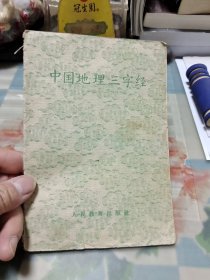 冠生园
中国地理三字经
人民教育出版社